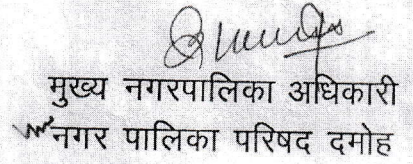 मुख्य नगरपालिका अधिकारी
नगर पालिका परिषद दमोह